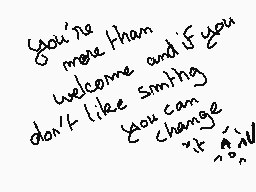 you're
more than
welcome and if you
don't like smthg
you can
change
it ^o^